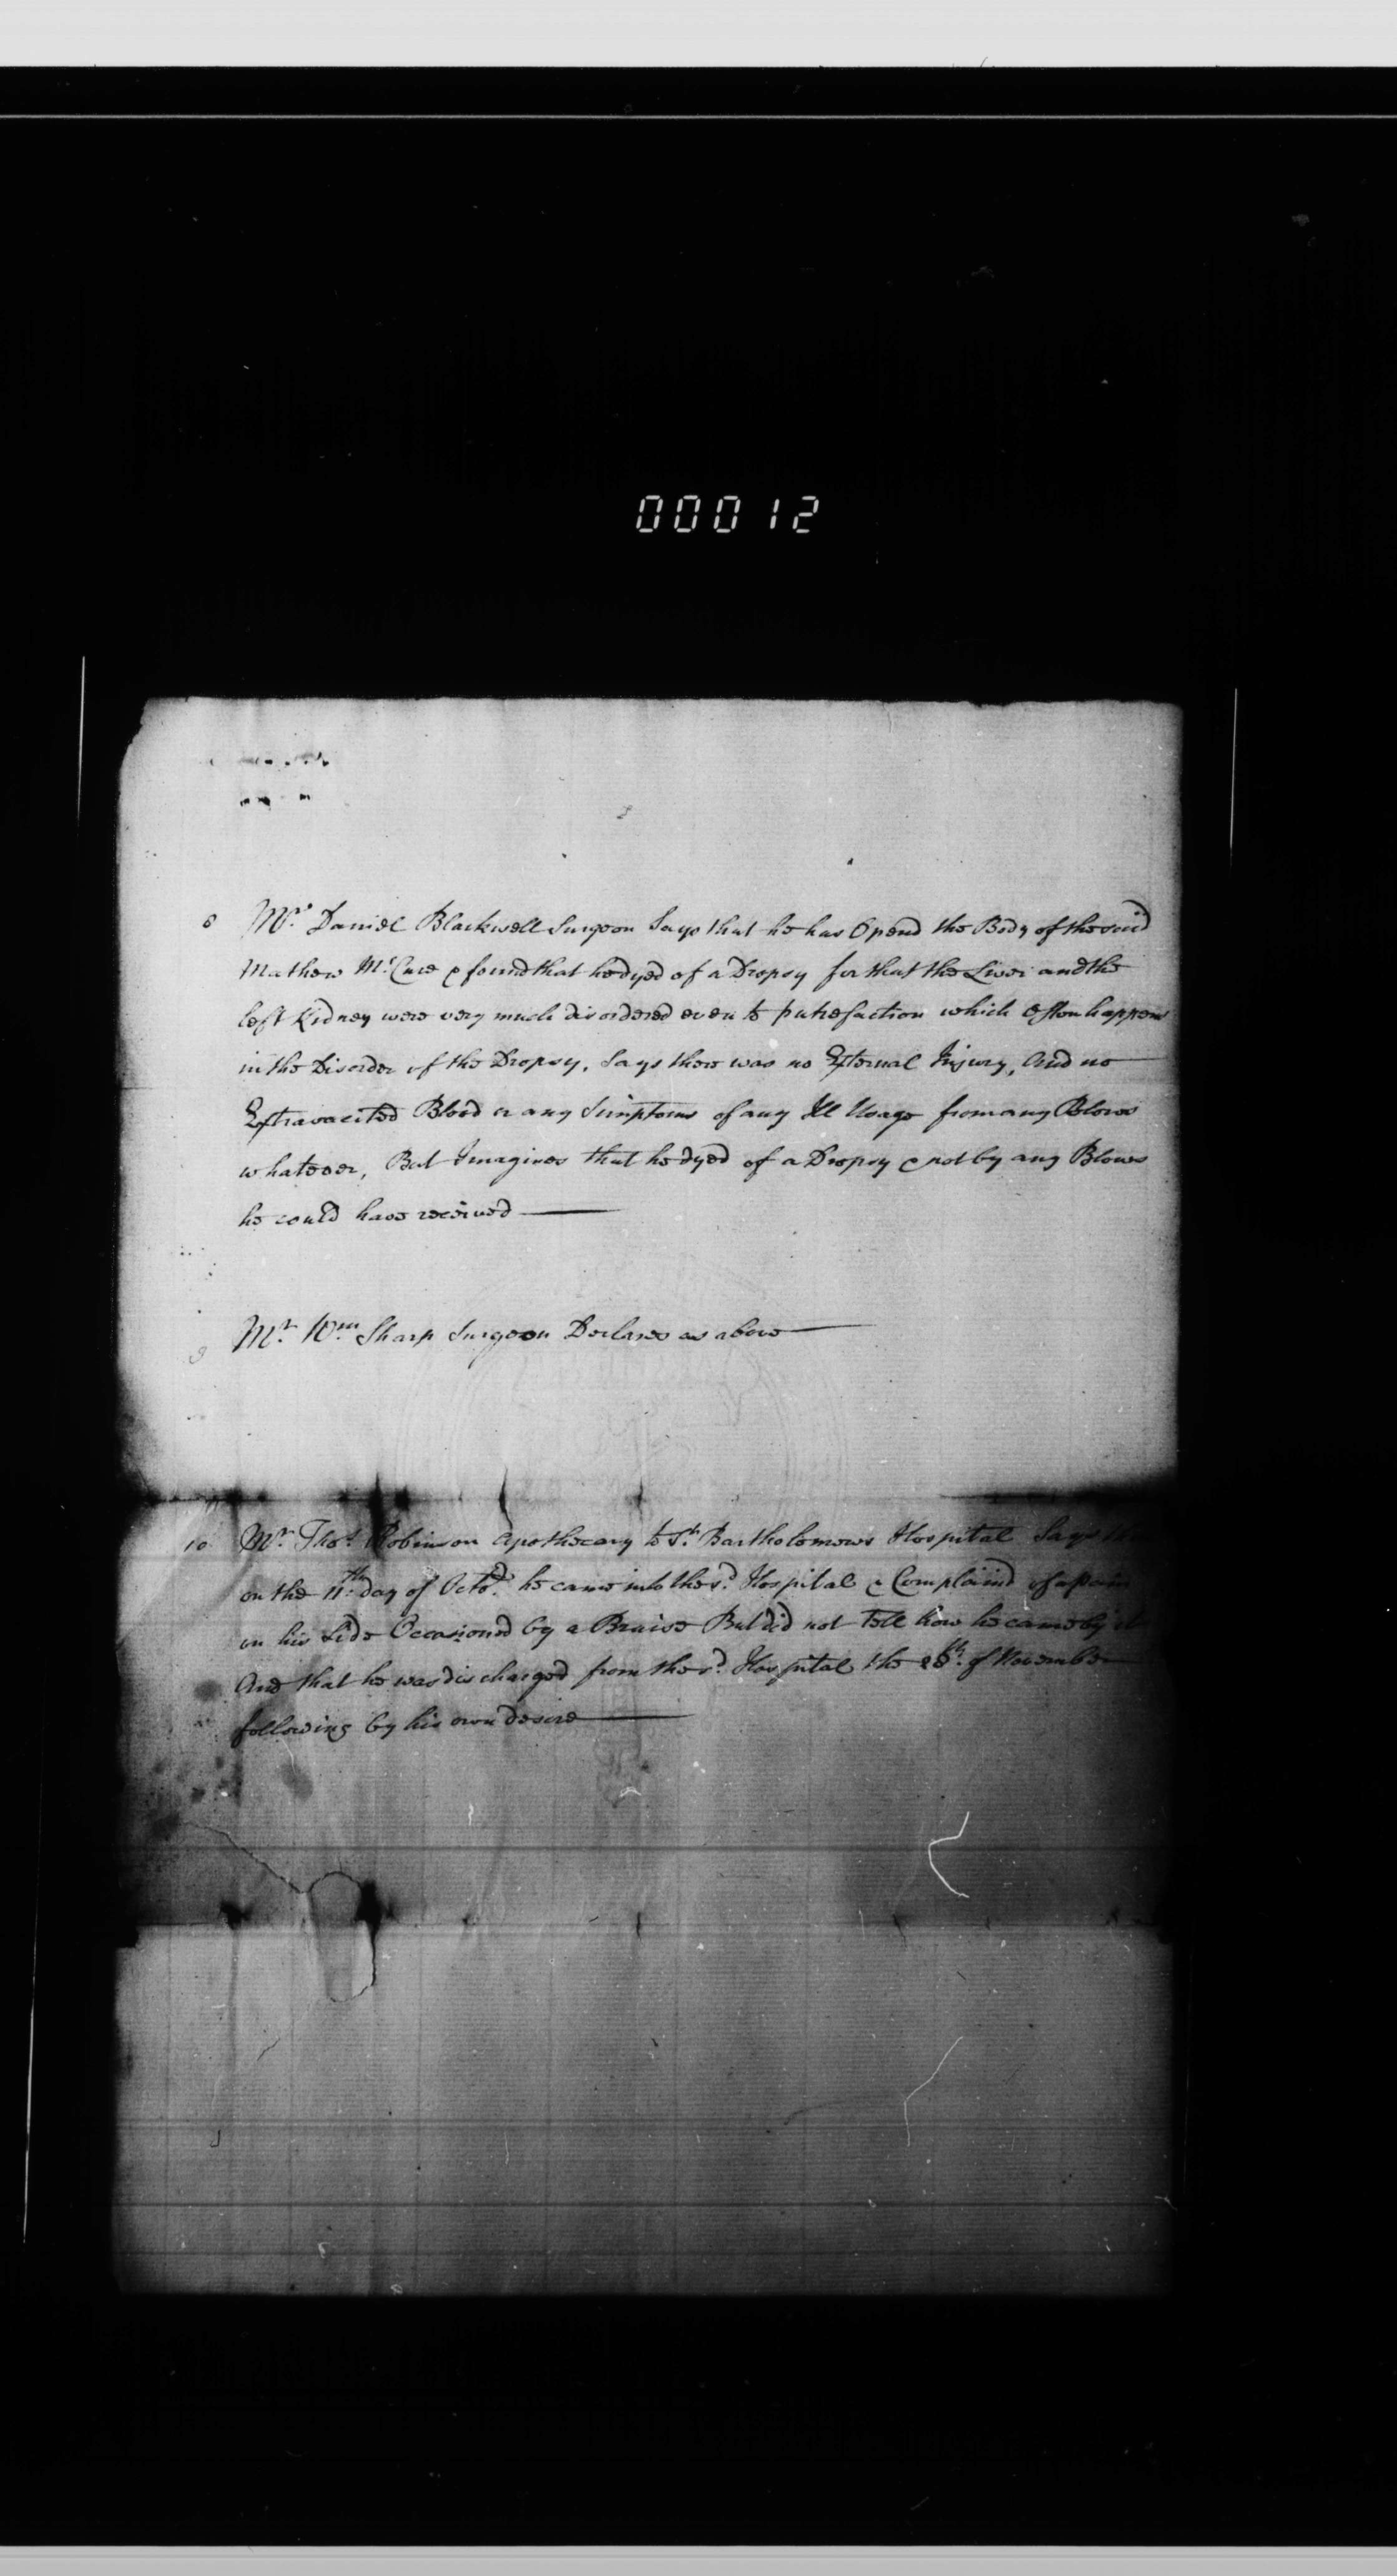 00012
8 Mr. Daniel Blackwell Surgeon Says that he has Opend the Body of the said
Mathew Mc.Cure & found that he dyed of a Dropsy for that the Liver and the
left Kidney were very much disordered even to putrefaction which often happens
in the Disorder of the Dropsy. Says there was no External Injury, And no
Extravacited Blood or any Simptoms of any Ill Usage from any Blows
whatever, But Imagines that he dyed of a Dropsy & not by any Blows
he could have received
9 Mr. Wm. Sharp Surgeon Declares as above
10 Mr. Thos. Robinson Apothecary to St. Bartholomews Hospital Says
on the 11th. day of Octor. he came into the sd. Hospital & Complaind of a pain
in his Side Occasioned by a Bruise But did not Tell how he came by it
And that he was discharged from the sd. Hospital the 28th. of November
following by his own desire